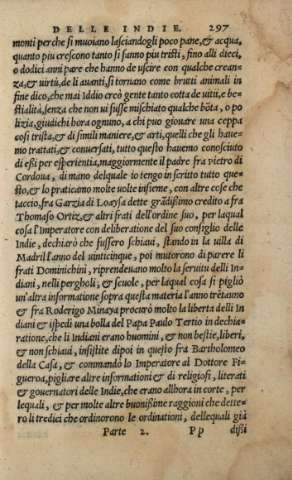 DELLE INDIE. 297
monti perche si muoiano lasciandogli poco pane, & acqua,
quanto piu crescono tanto si fanno piu tristi, fino alli dieci,
o dodici anni pare che hanno da uscire con qualche crean-
za, & uirtù, de li auanti, si tornano come brutti animali in
fine dico, che mai Iddio creò gente tanto cotta de uitii, e be-
stialità, senza che non ui fusse mischiato qualche bōta, o po
litia, giudichi hora ognuno, a chi puo giouare una ceppa
cosi trista, & di simili maniere, & arti, quelli che gli haue-
mo trattati, & conuersati, tutto questo hauemo conosciuto
di essi per esperientia, maggiormente il padre fra pietro di
Cordoua, di mano delquale io tengo in scritto tutto que-
sto, & lo praticamo molte uolte insieme, con altre cose che
taccio, fra Garzia di Loaysa dette grādissimo credito a fra
Thomaso Ortiz, & altri frati dell'ordine suo, per laqual
cosa l'Imperatore con deliberatione del suo consiglio delle
Indie, dechiarò che fussero schiaui, stando in la uilla di
Madril l'anno del uinticinque, poi mutorono di parere li
frati Dominichini, riprendeuano molto la seruitu delli In-
diani, nelli pergholi, & scuole, per laqual cosa si pigliò
un'altra informatione sopra questa materia l'anno trētauno
& fra Roderigo Minaya procurò molto la liberta delli In
diani & ispedì una bolla del Papa Paulo Tertio in dechia-
ratione, che li Indiani erano huomini, & non bestie, liberi,
& non schiaui, insistite dipoi in questo fra Bartholomeo
della Casa, & commandò lo Imperatore al Dottore Fi-
gueroa, pigliare altre informationi & di religiosi, literati
& gouernatori delle Indie, che erano allhora in corte, per
lequali, & per molte altre buonissime raggioni che dette-
ro li tredici che ordinorono le ordinationi, dellequali già
Parte 2. Pp dissi